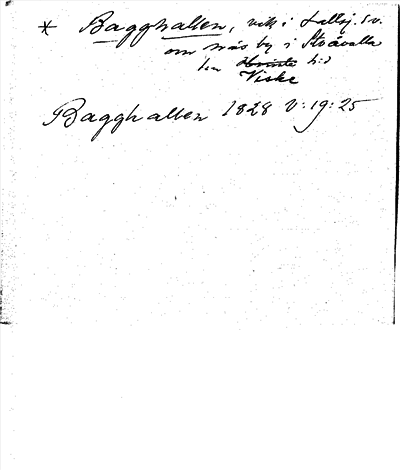 * Bagghallen, vik i Lallsj. s.v.
om näs by i Stråvalla
sn Viske h:d
Bagghallen 1828 V:19:25